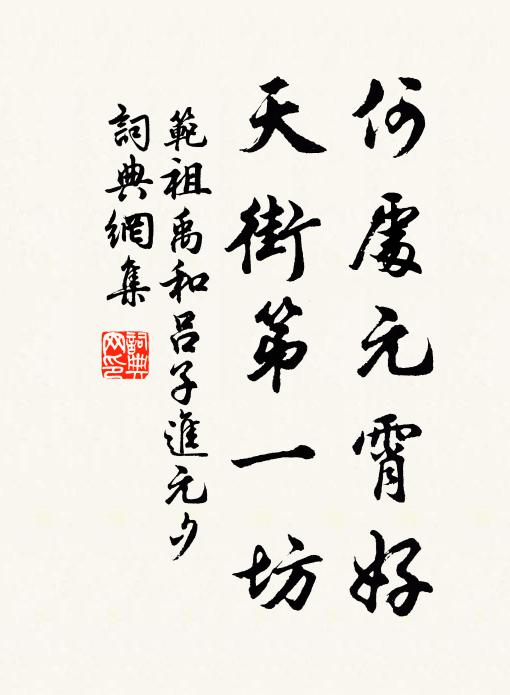 何處元霄好
天街第一坊
範祖禹和呂子進元夕
詞典網集
詞典网印